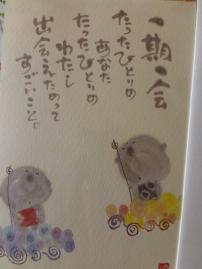 一期一会
たったひとりの
あなた
たったひとりの
わたし
出会えたって
すごいこと。